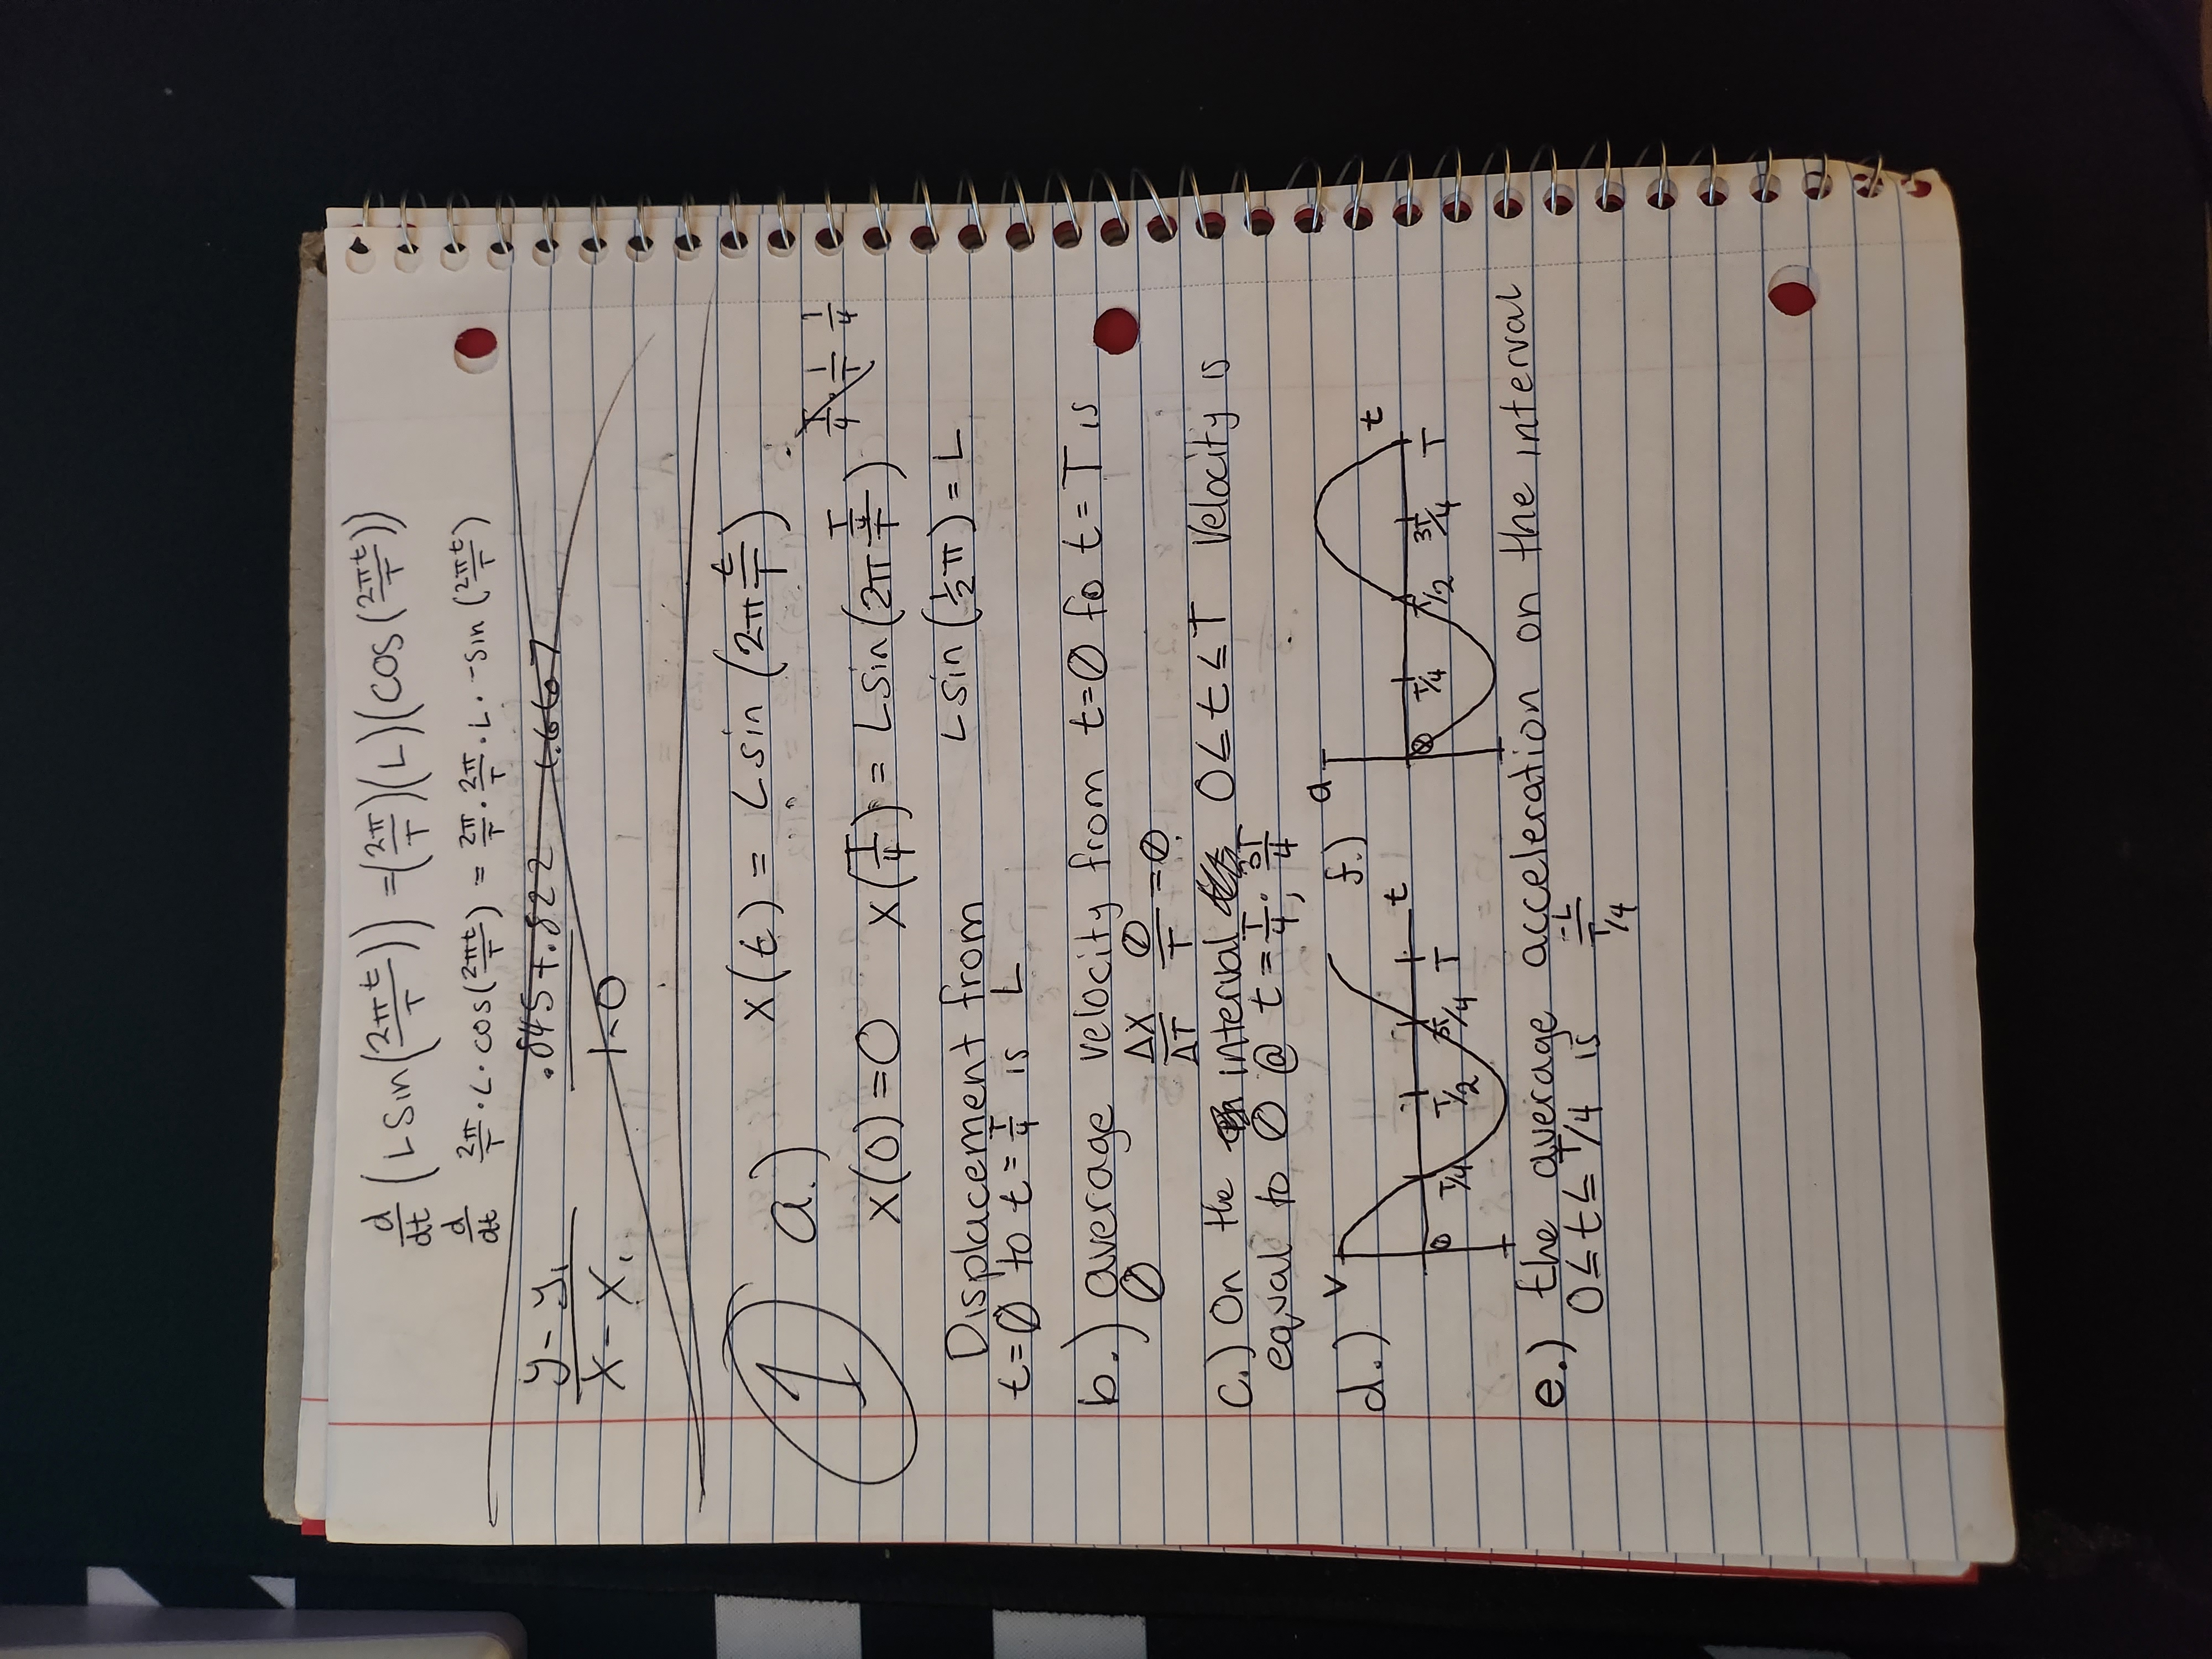 d/dt (L Sin(2πt/T)) = (2π/T)(L)(cos(2πt/T))
d/dt 2π/T · L · cos(2πt/T) = 2π/T · 2π/T · L · -sin(2πt/T)
y - y₁ / x - x₁ .845+.822 / 1-0 1.667
1 a.) x(t) = L sin(2π t/T)
x(0) = 0 x(T/4) = L sin(2π (T/4)/T) T/4 · 1/T 1/4
Displacement from L sin(1/2 π) = L
t=0 to t = T/4 is L
b.) average velocity from t=0 to t=T is
0 ΔX/ΔT 0/T = 0
c.) On the interval 0 ≤ t ≤ T Velocity is
equal to 0 @ t = T/4; 3T/4
d.) v 0 T/4 T/2 3T/4 T t f.) a 0 T/4 T/2 3T/4 T t
e.) the average acceleration on the interval
0 ≤ t ≤ T/4 is -L / T/4